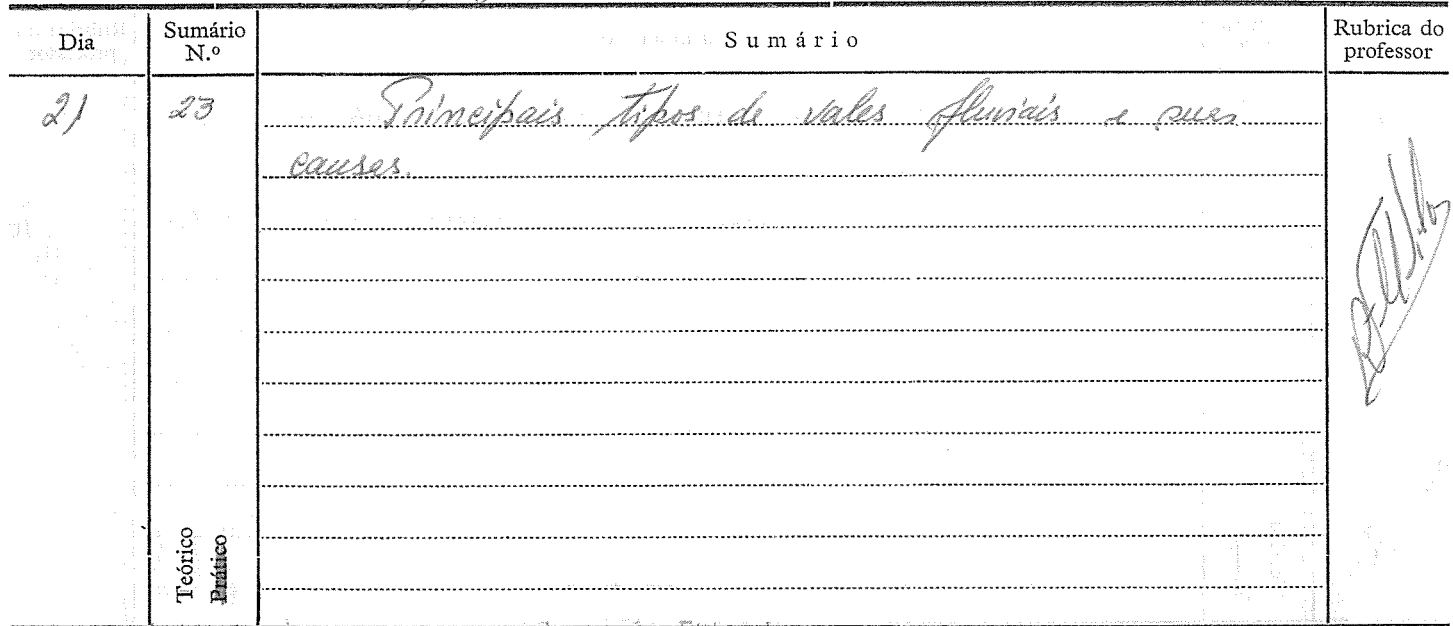 Dia
Sumário N.º
Sumário
Rubrica do professor
21
23
Principais tipos de vales fluviais e suas
causas.
Teórico
Prático